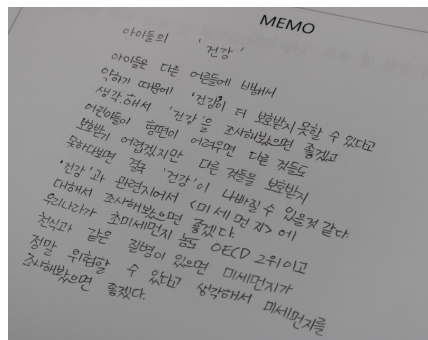 MEMO
아이들의 '건강'
아이들은 다른 어른들에 비해서
약하기 때문에 '건강'이 더 보호받지 못할 수 있다고
생각.해서 '건강'을 조사해봤으면 좋겠고
어린이들이 형편이 어려우면 다른 것들도
보호받기 어렵겠지만 다른 것들을 보호받지
못하다보면 결국 '건강'이 나빠질 수 있을것 같다.
'건강'과 관련지어서 <미세먼지>에
대해서 조사해봤으면 좋겠다.
우리나라가 초미세먼지 농도 OECD 2위이고
천식과 같은 질병이 있으면 미세먼지가
정말 위험할 수 있다고 생각해서 미세먼지를
조사해봤으면 좋겠다.